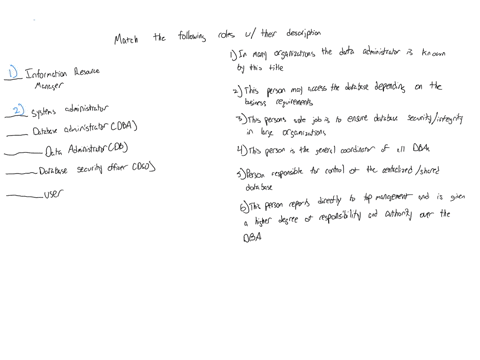 Match the following roles w/ their description
1) Information Resource
Manager
2) Systems administrator
Database administrator (DBA)
Data Administrator (DB)
Database security officer (DSO)
user
1) In many organizations the data administrator is known
by this title
2) This person may access the database depending on the
business requirements
3) This persons sole job is to ensure database security/integrity
in large organizations
4) This person is the general coordinator of all DBAs
5) Person responsible for control of the centralized/shared
database
6) This person reports directly to top management and is given
a higher degree of responsibility and authority over the
DBA